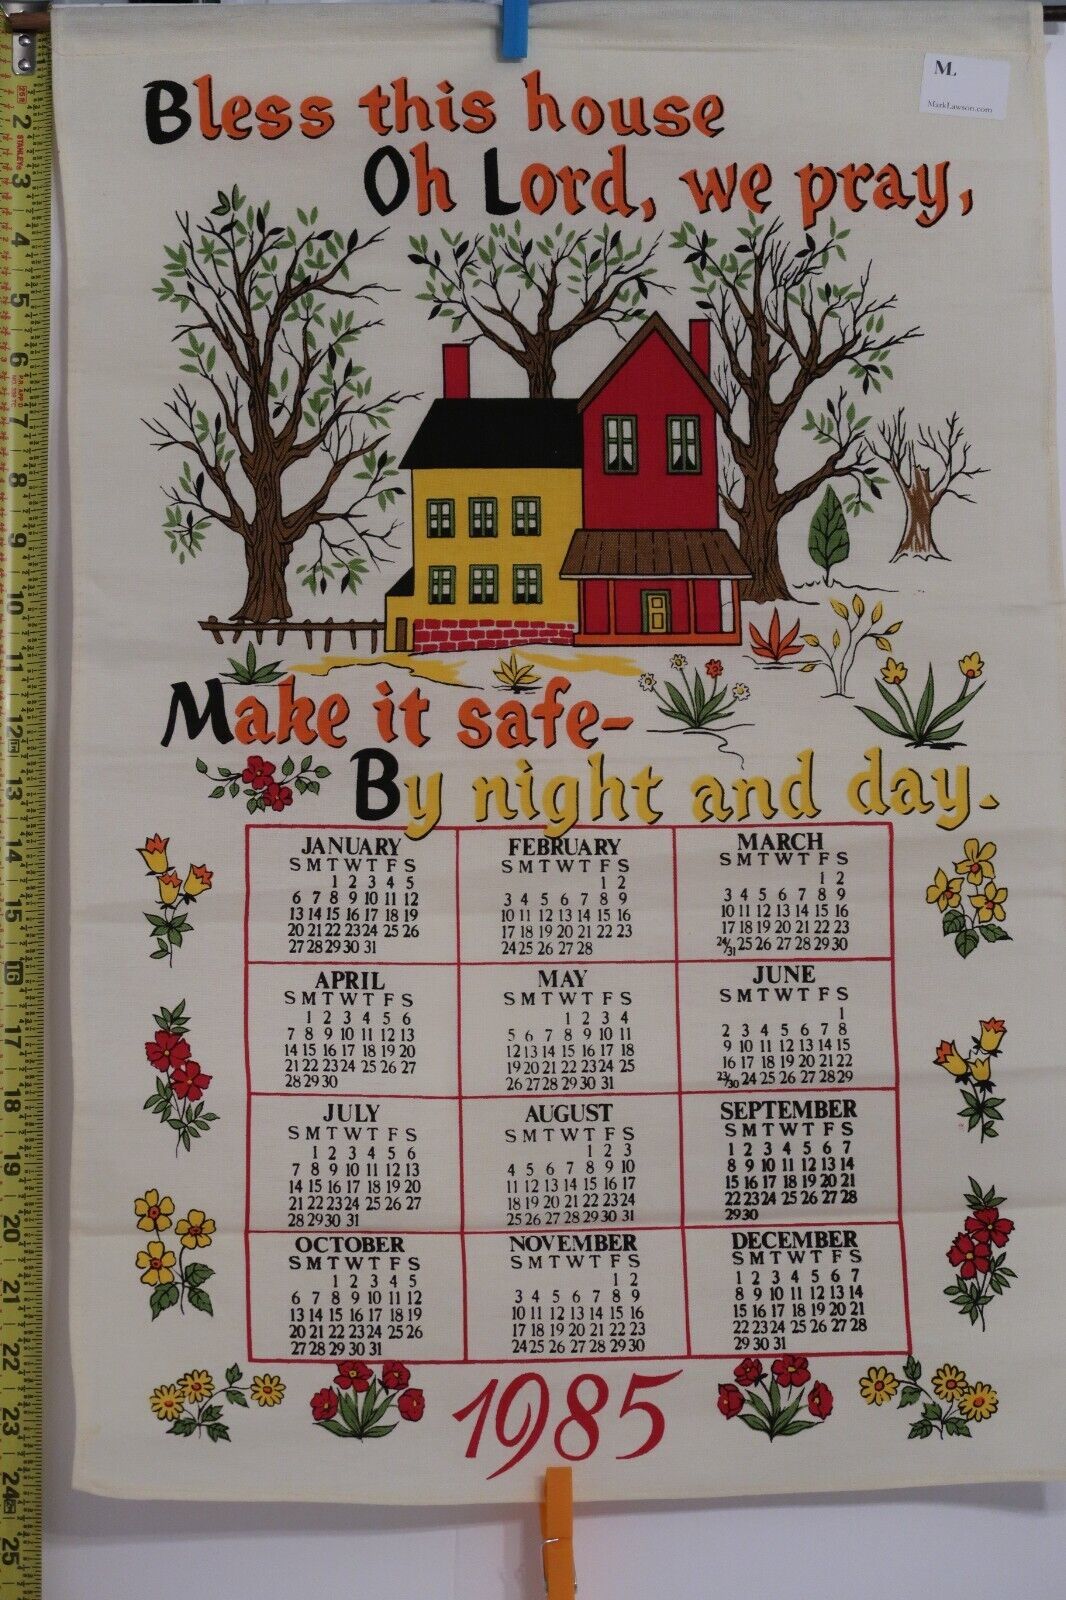 Bless this house
Oh Lord, we pray,
M.
MarkLawson.com
Make it safe-
By night and day.
JANUARY
S M T W T F S
1 2 3 4 5
6 7 8 9 10 11 12
13 14 15 16 17 18 19
20 21 22 23 24 25 26
27 28 29 30 31
FEBRUARY
S M T W T F S
1 2
3 4 5 6 7 8 9
10 11 12 13 14 15 16
17 18 19 20 21 22 23
24 25 26 27 28
MARCH
S M T W T F S
1 2
3 4 5 6 7 8 9
10 11 12 13 14 15 16
17 18 19 20 21 22 23
24/31 25 26 27 28 29 30
APRIL
S M T W T F S
1 2 3 4 5 6
7 8 9 10 11 12 13
14 15 16 17 18 19 20
21 22 23 24 25 26 27
28 29 30
MAY
S M T W T F S
1 2 3 4
5 6 7 8 9 10 11
12 13 14 15 16 17 18
19 20 21 22 23 24 25
26 27 28 29 30 31
JUNE
S M T W T F S
1
2 3 4 5 6 7 8
9 10 11 12 13 14 15
16 17 18 19 20 21 22
23/30 24 25 26 27 28 29
JULY
S M T W T F S
1 2 3 4 5 6
7 8 9 10 11 12 13
14 15 16 17 18 19 20
21 22 23 24 25 26 27
28 29 30 31
AUGUST
S M T W T F S
1 2 3
4 5 6 7 8 9 10
11 12 13 14 15 16 17
18 19 20 21 22 23 24
25 26 27 28 29 30 31
SEPTEMBER
S M T W T F S
1 2 3 4 5 6 7
8 9 10 11 12 13 14
15 16 17 18 19 20 21
22 23 24 25 26 27 28
29 30
OCTOBER
S M T W T F S
1 2 3 4 5
6 7 8 9 10 11 12
13 14 15 16 17 18 19
20 21 22 23 24 25 26
27 28 29 30 31
NOVEMBER
S M T W T F S
1 2
3 4 5 6 7 8 9
10 11 12 13 14 15 16
17 18 19 20 21 22 23
24 25 26 27 28 29 30
DECEMBER
S M T W T F S
1 2 3 4 5 6 7
8 9 10 11 12 13 14
15 16 17 18 19 20 21
22 23 24 25 26 27 28
29 30 31
1985
2
STANLEY
3
4
5
6
7
8
9
10
11
12
13
14
15
16
17
18
19
20
21
22
23
24
25